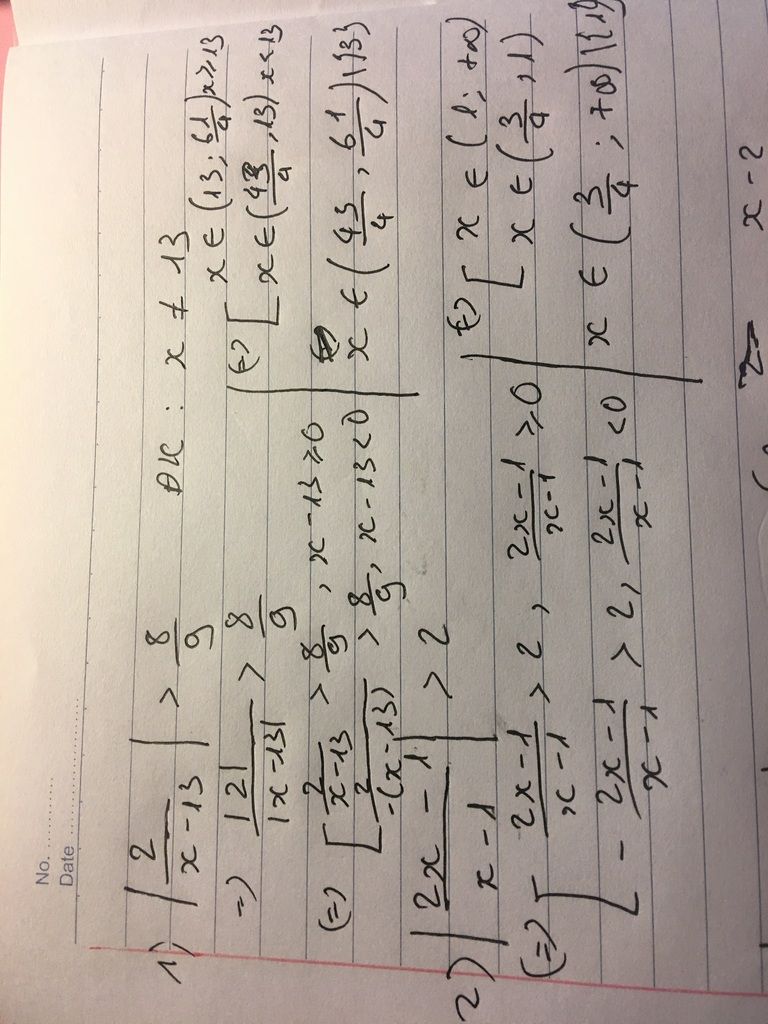 No. ............
Date ........................
1) | 2 / (x - 13) | > 8/9    ĐK : x ≠ 13
=> |2| / |x - 13| > 8/9
(=) [ 2 / (x - 13) > 8/9 , x - 13 ≥ 0
[ 2 / -(x - 13) > 8/9 , x - 13 < 0
x ∈ (13 ; 61/4) x ≥ 13
(=) [ x ∈ (43/4 , 13) x < 13
x ∈ (43/4 , 61/4) | {13}
2) | (2x - 1) / (x - 1) | > 2
(=) [ (2x - 1) / (x - 1) > 2 , (2x - 1) / (x - 1) ≥ 0
[ - (2x - 1) / (x - 1) > 2 , (2x - 1) / (x - 1) < 0
(=) [ x ∈ (1 ; +∞)
[ x ∈ (3/4 , 1)
x ∈ (3/4 ; +∞) | {1}
x - 2